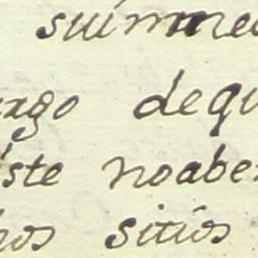 suimme
argo dequ
este noabe
eos sitios